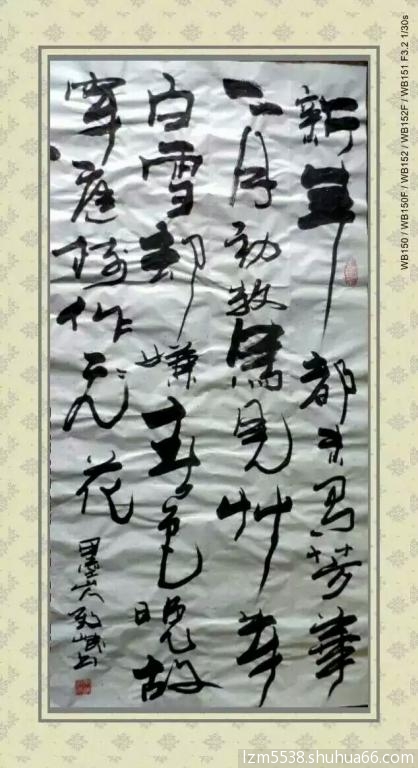 新年都未有芳華
二月初驚見艸芽
白雪却嫌春色晚故
穿庭樹作飞花
WB150 / WB150F / WB152 / WB152F / WB151 F3.2 1/30s
lzm5538.shuhua66.com